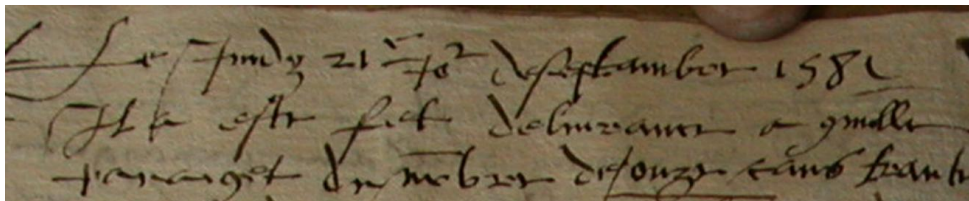 Le Jeudy 21me Jor de septambre 1581
Il a este fect delivrance a gnille
du nobre de honze cans frans